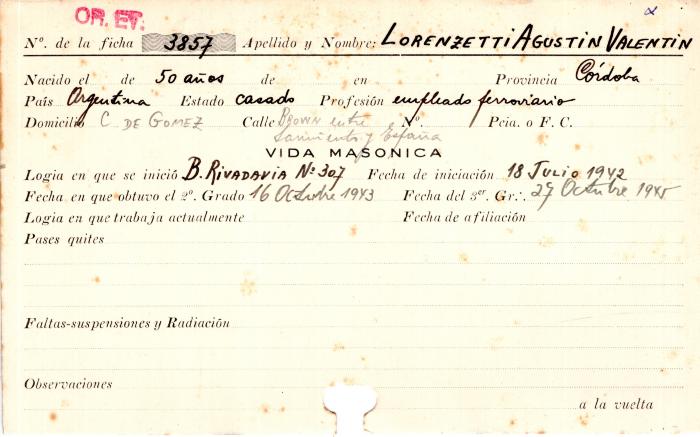 OR. ET.
Nº. de la ficha 3857 Apellido y Nombre: LORENZETTI AGUSTIN VALENTIN
Nacido el de 50 años de en Provincia Córdoba
País Argentina Estado casado Profesión empleado ferroviario
Domicilio C. DE GOMEZ Calle BROWN entre Nº. Pcia. o F. C.
Sarmiento y España
VIDA MASONICA
Logia en que se inició B. RIVADAVIA Nº 307 Fecha de iniciación 18 JULIO 1942
Fecha en que obtuvo el 2º. Grado 16 Octubre 1943 Fecha del 3er. Gr∴ 27 Octubre 1945
Logia en que trabaja actualmente Fecha de afiliación
Pases quites
Faltas-suspensiones y Radiación
Observaciones
a la vuelta